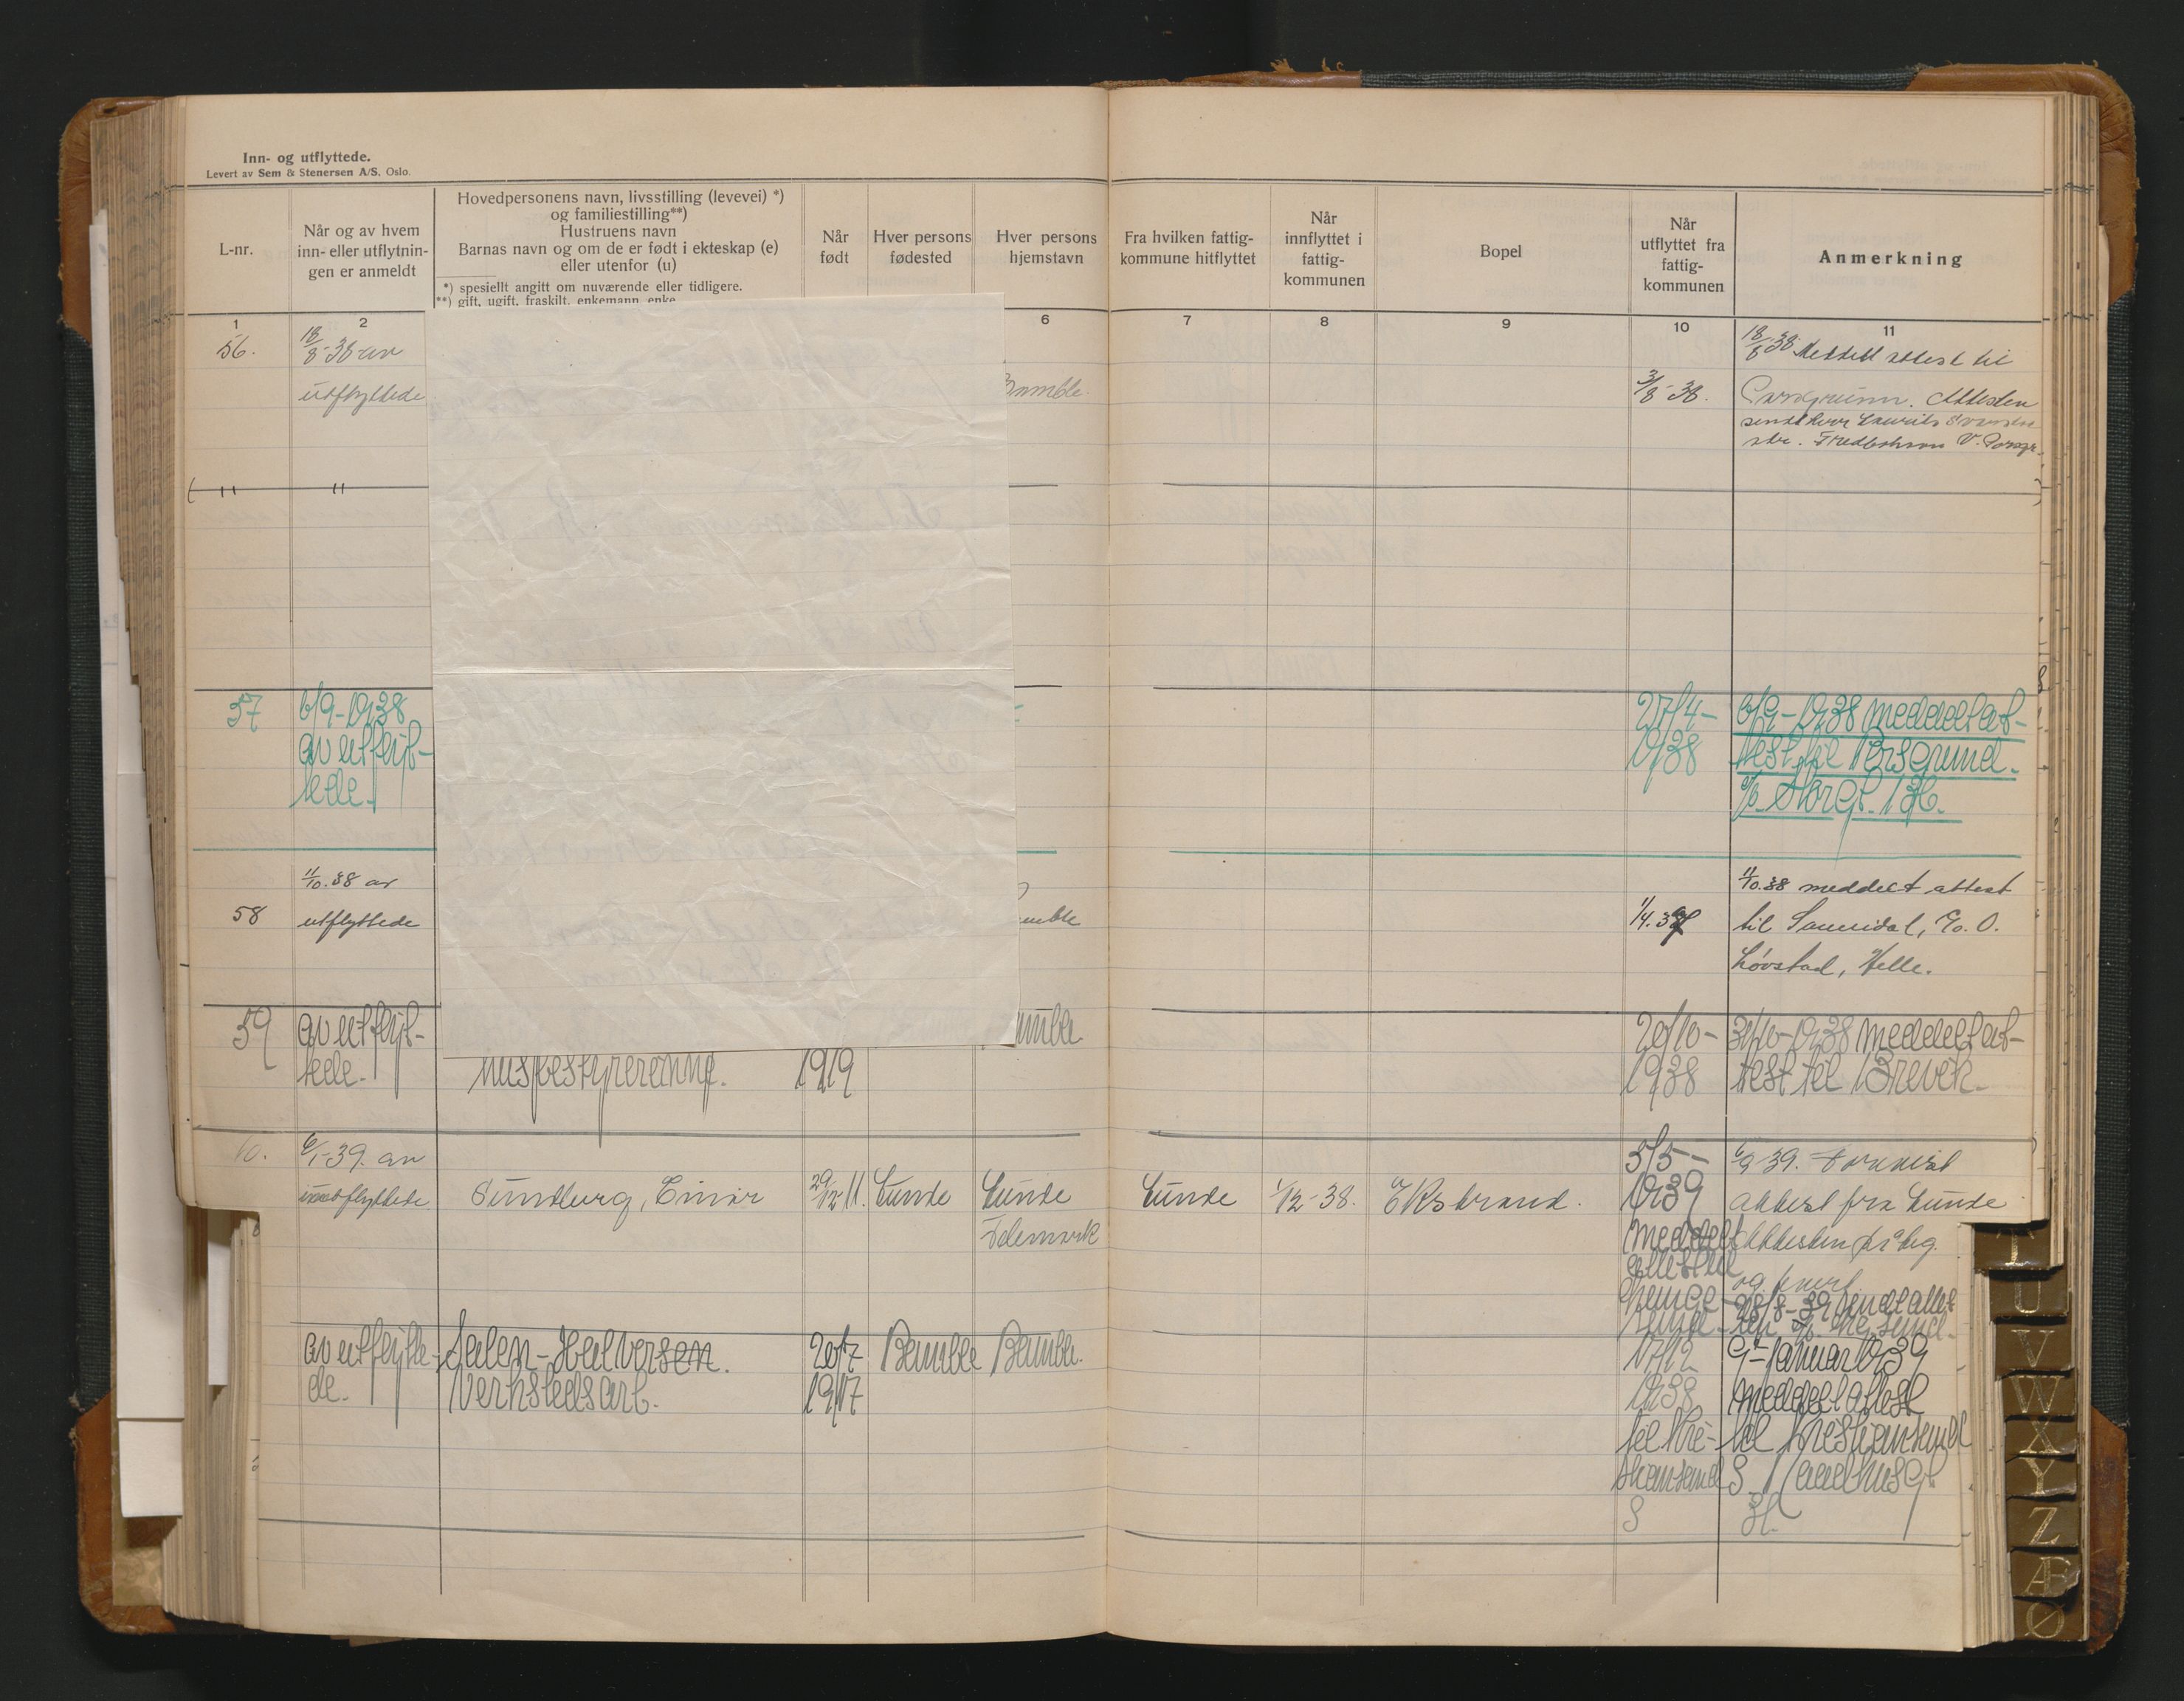 Inn- og utflyttede.
Levert av Sem & Stenersen A/S, Oslo.
L-nr.
Når og av hvem
inn- eller utflytnin-
gen er anmeldt
Hovedpersonens navn, livsstilling (levevei) *)
og familiestilling**)
Hustruens navn
Barnas navn og om de er født i ekteskap (e)
eller utenfor (u)
*) spesiellt angitt om nuværende eller tidligere.
**) gift, ugift, fraskilt, enkemann, enke
Når
født
Hver persons
fødested
Hver persons
hjemstavn
Fra hvilken fattig-
kommune hitflyttet
Når
innflyttet i
fattig-
kommunen
Bopel
Når
utflyttet fra
fattig-
kommunen
Anmerkning
1 2 6 7 8 9 10 11
56. 18/8-38 av 18/8-38 Meddelt attest til
utflyttede Bamble. 3/8-38. Porsgrunn. Attesten
sendt herr
str. V. Porsgr.
" "
57 6/9-1938 27/4- 6/9-1938 meddelt at-
av utflyt- 1938 test til Porsgrund.
tede. Storgt.
11/10.38 av 11/10.38 meddelt attest
58 utflyttede amble 1/4.38 til Sannidal, c/o. O.
Løvstad, Helle.
59 av utflyt- amble 20/10- 31/10-1938 meddelt at-
tede. husbestyrerinne. 1919 1938 test til Brevik.
6/1-39. av 3/5- 39.
innflyttede Sundberg, Einar 29/12-11. Lunde Lunde Lunde 1/12-38. Ekstrand. 1939 attest fra Lunde
Telemark meddelt Attesten påteg.
attest til og
28/8-39 sendt attes-
av utflytte- Salen-Halvorsen. 20/7 Bamble Bamble. 17/12 9-januar 1939
de. Verkstedsarb. 1917 1938 meddelt attest
til Kri- til Kristiansand
stiansand S. Raadhusgt.
S